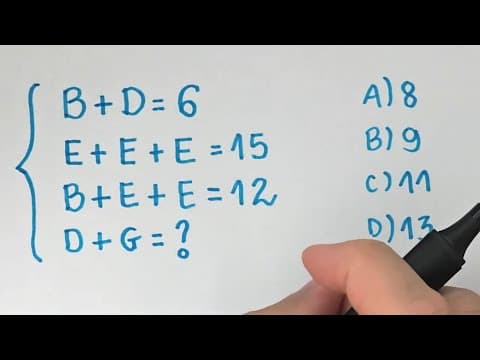 B + D = 6
E + E + E = 15
B + E + E = 12
D + G = ?
A) 8
B) 9
C) 11
D) 13